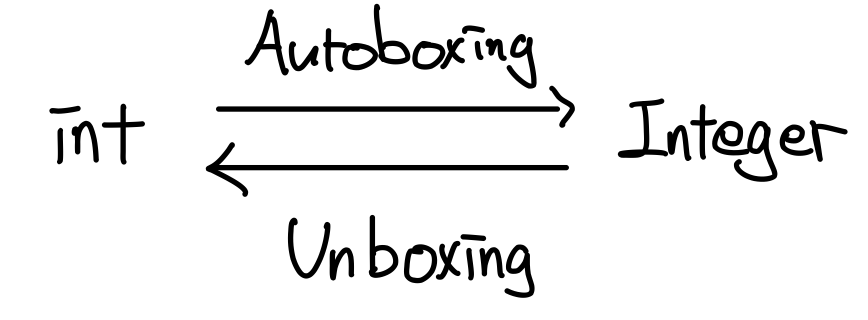 Autoboxing
int Integer
Unboxing